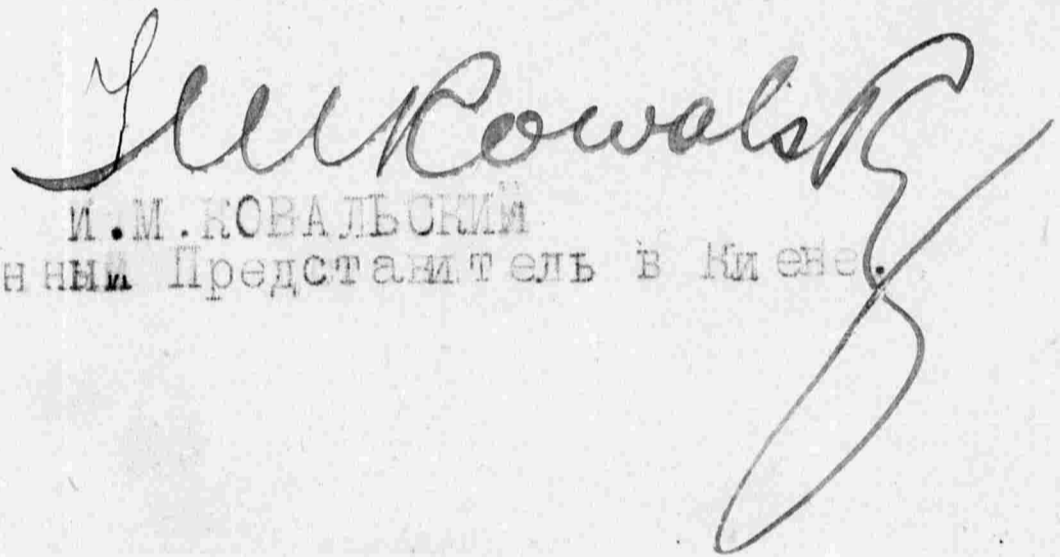 IMKowalsky
И.М.КОВАЛЬСКИЙ
нный Представитель в Киеве.